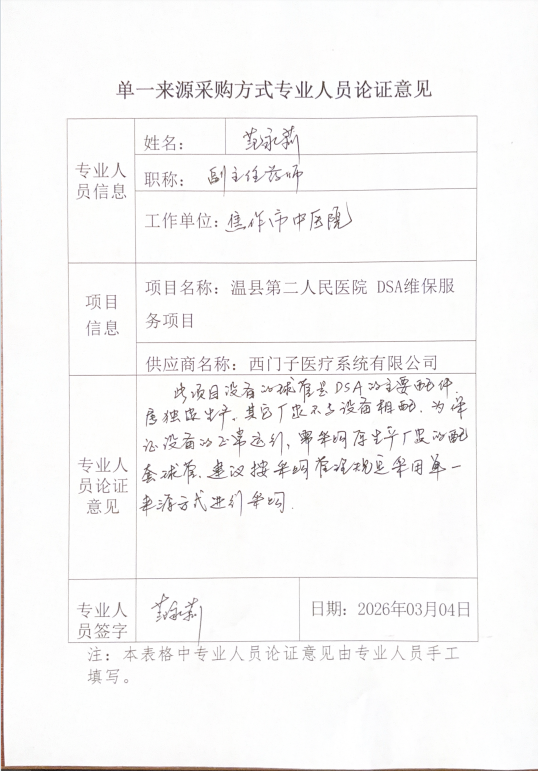 单一来源采购方式专业人员论证意见
专业人员信息
姓名： 范永莉
职称： 副主任药师
工作单位：焦作市中医院
项目信息
项目名称：温县第二人民医院 DSA维保服
务项目
供应商名称：西门子医疗系统有限公司
专业人员论证意见
此项目设备的球管是DSA的主要配件，
属独家生产，其它厂家不与设备相配，为保
证设备的正常运行，需采购原生产厂家的配
套球管，建议按采购管理规定采用单一
来源方式进行采购.
专业人员签字
范永莉
日期：2026年03月04日
注：本表格中专业人员论证意见由专业人员手工
填写。